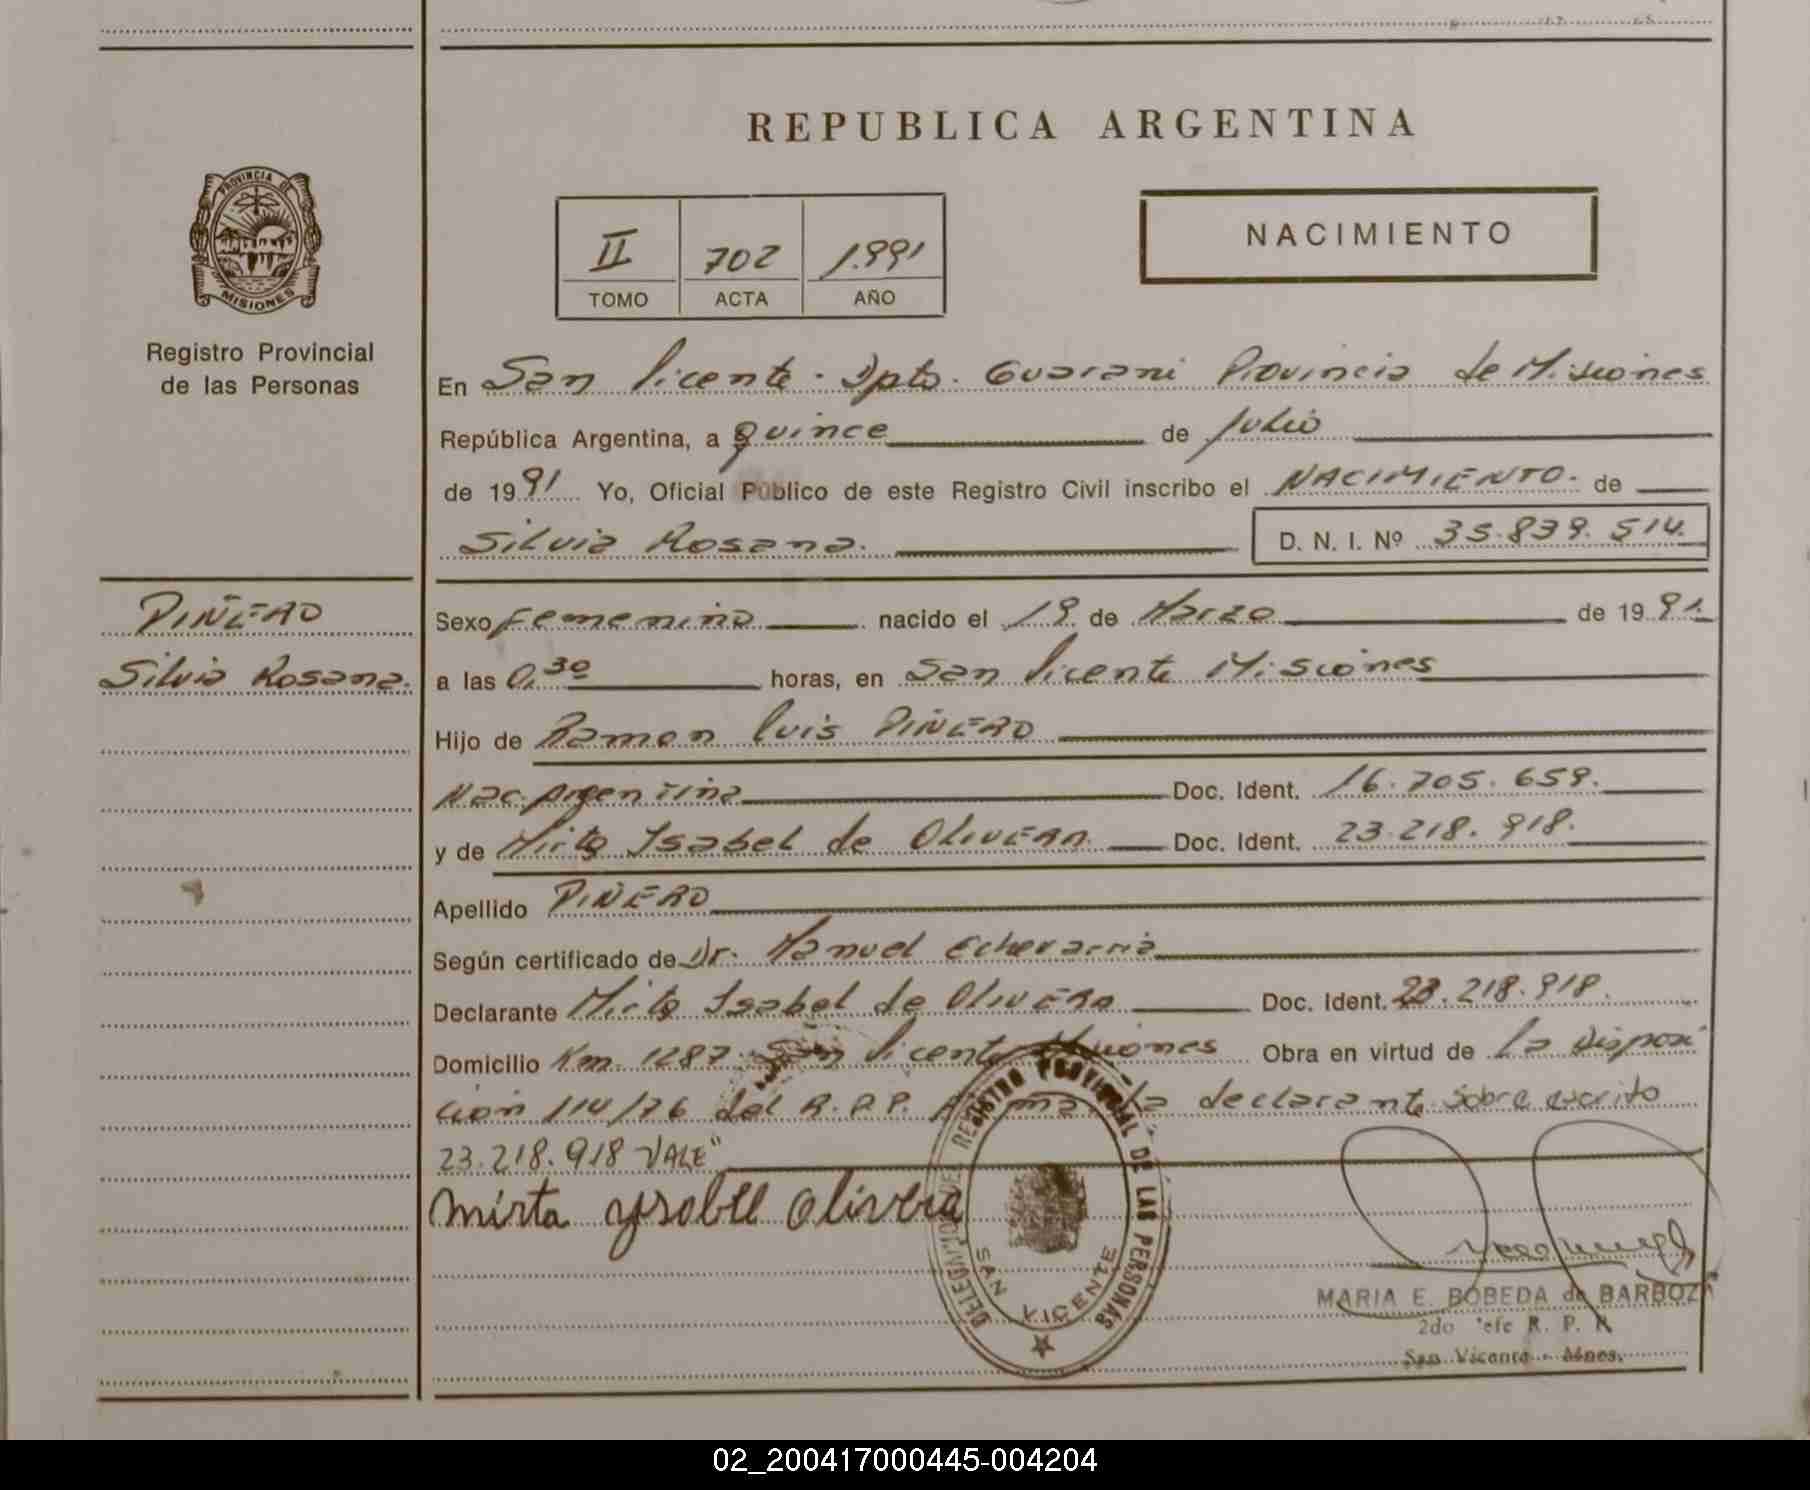 REPUBLICA ARGENTINA
PROVINCIA DE
MISIONES
Registro Provincial
de las Personas
II 702 1.991
TOMO ACTA AÑO
NACIMIENTO
En San Vicente - Dpto. Guarani Provincia de Misiones
República Argentina, a quince de Julio
de 1991 Yo, Oficial Público de este Registro Civil inscribo el NACIMIENTO. de
Silvia Rosana. D. N. I. Nº 35.839.514.
PIÑERO
Silvia Rosana.
Sexo Femenino nacido el 19 de Marzo de 1991.
a las 0,30 horas, en San Vicente Misiones
Hijo de Ramon Luis PIÑERO
Nac. Argentina Doc. Ident. 16.705.659.
y de Mirta Isabel de OLIVERA Doc. Ident. 23.218.918.
Apellido PIÑERO
Según certificado de Dr. Manuel Echevarria
Declarante Mirta Isabel de OLIVERA Doc. Ident. 23.218.918.
Domicilio Km. 1287 San Vicente Misiones Obra en virtud de La Disposi
ción 114/76 del R.P.P. la declarante sobre escrito
23.218.918 VALE"
mirta ysabel olivera
DELEGACION REGISTRO PROVINCIAL DE LAS PERSONAS
SAN VICENTE
MARIA E. BOBEDA de BARBOZA
2do Jefe R. P. P.
San Vicente - Mnes.
02_200417000445-004204